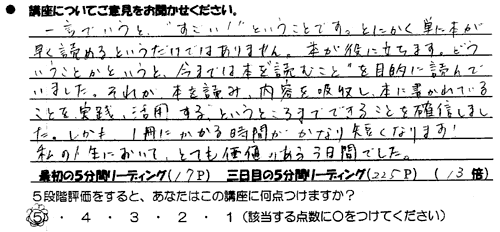 ● 講座についてご意見をお聞かせください。
一言でいうと、"すごい!"ということです。とにかく単に本が
早く読めるというだけではありません。本が役に立ちます。どう
いうことかというと、今までは本を"読むこと"を目的に読んで
いました。それが本を読み、内容を吸収し、本に書かれている
ことを実践、活用する、というところまでできることを確信しまし
た。しかも、1冊にかかる時間がかなり短くなります!
私の人生において、とても価値がある3日間でした。
最初の5分間リーディング(17P) 三日目の5分間リーディング(225P) (13倍)
5段階評価をすると、あなたはこの講座に何点つけますか?
5・4・3・2・1(該当する点数に○をつけてください)